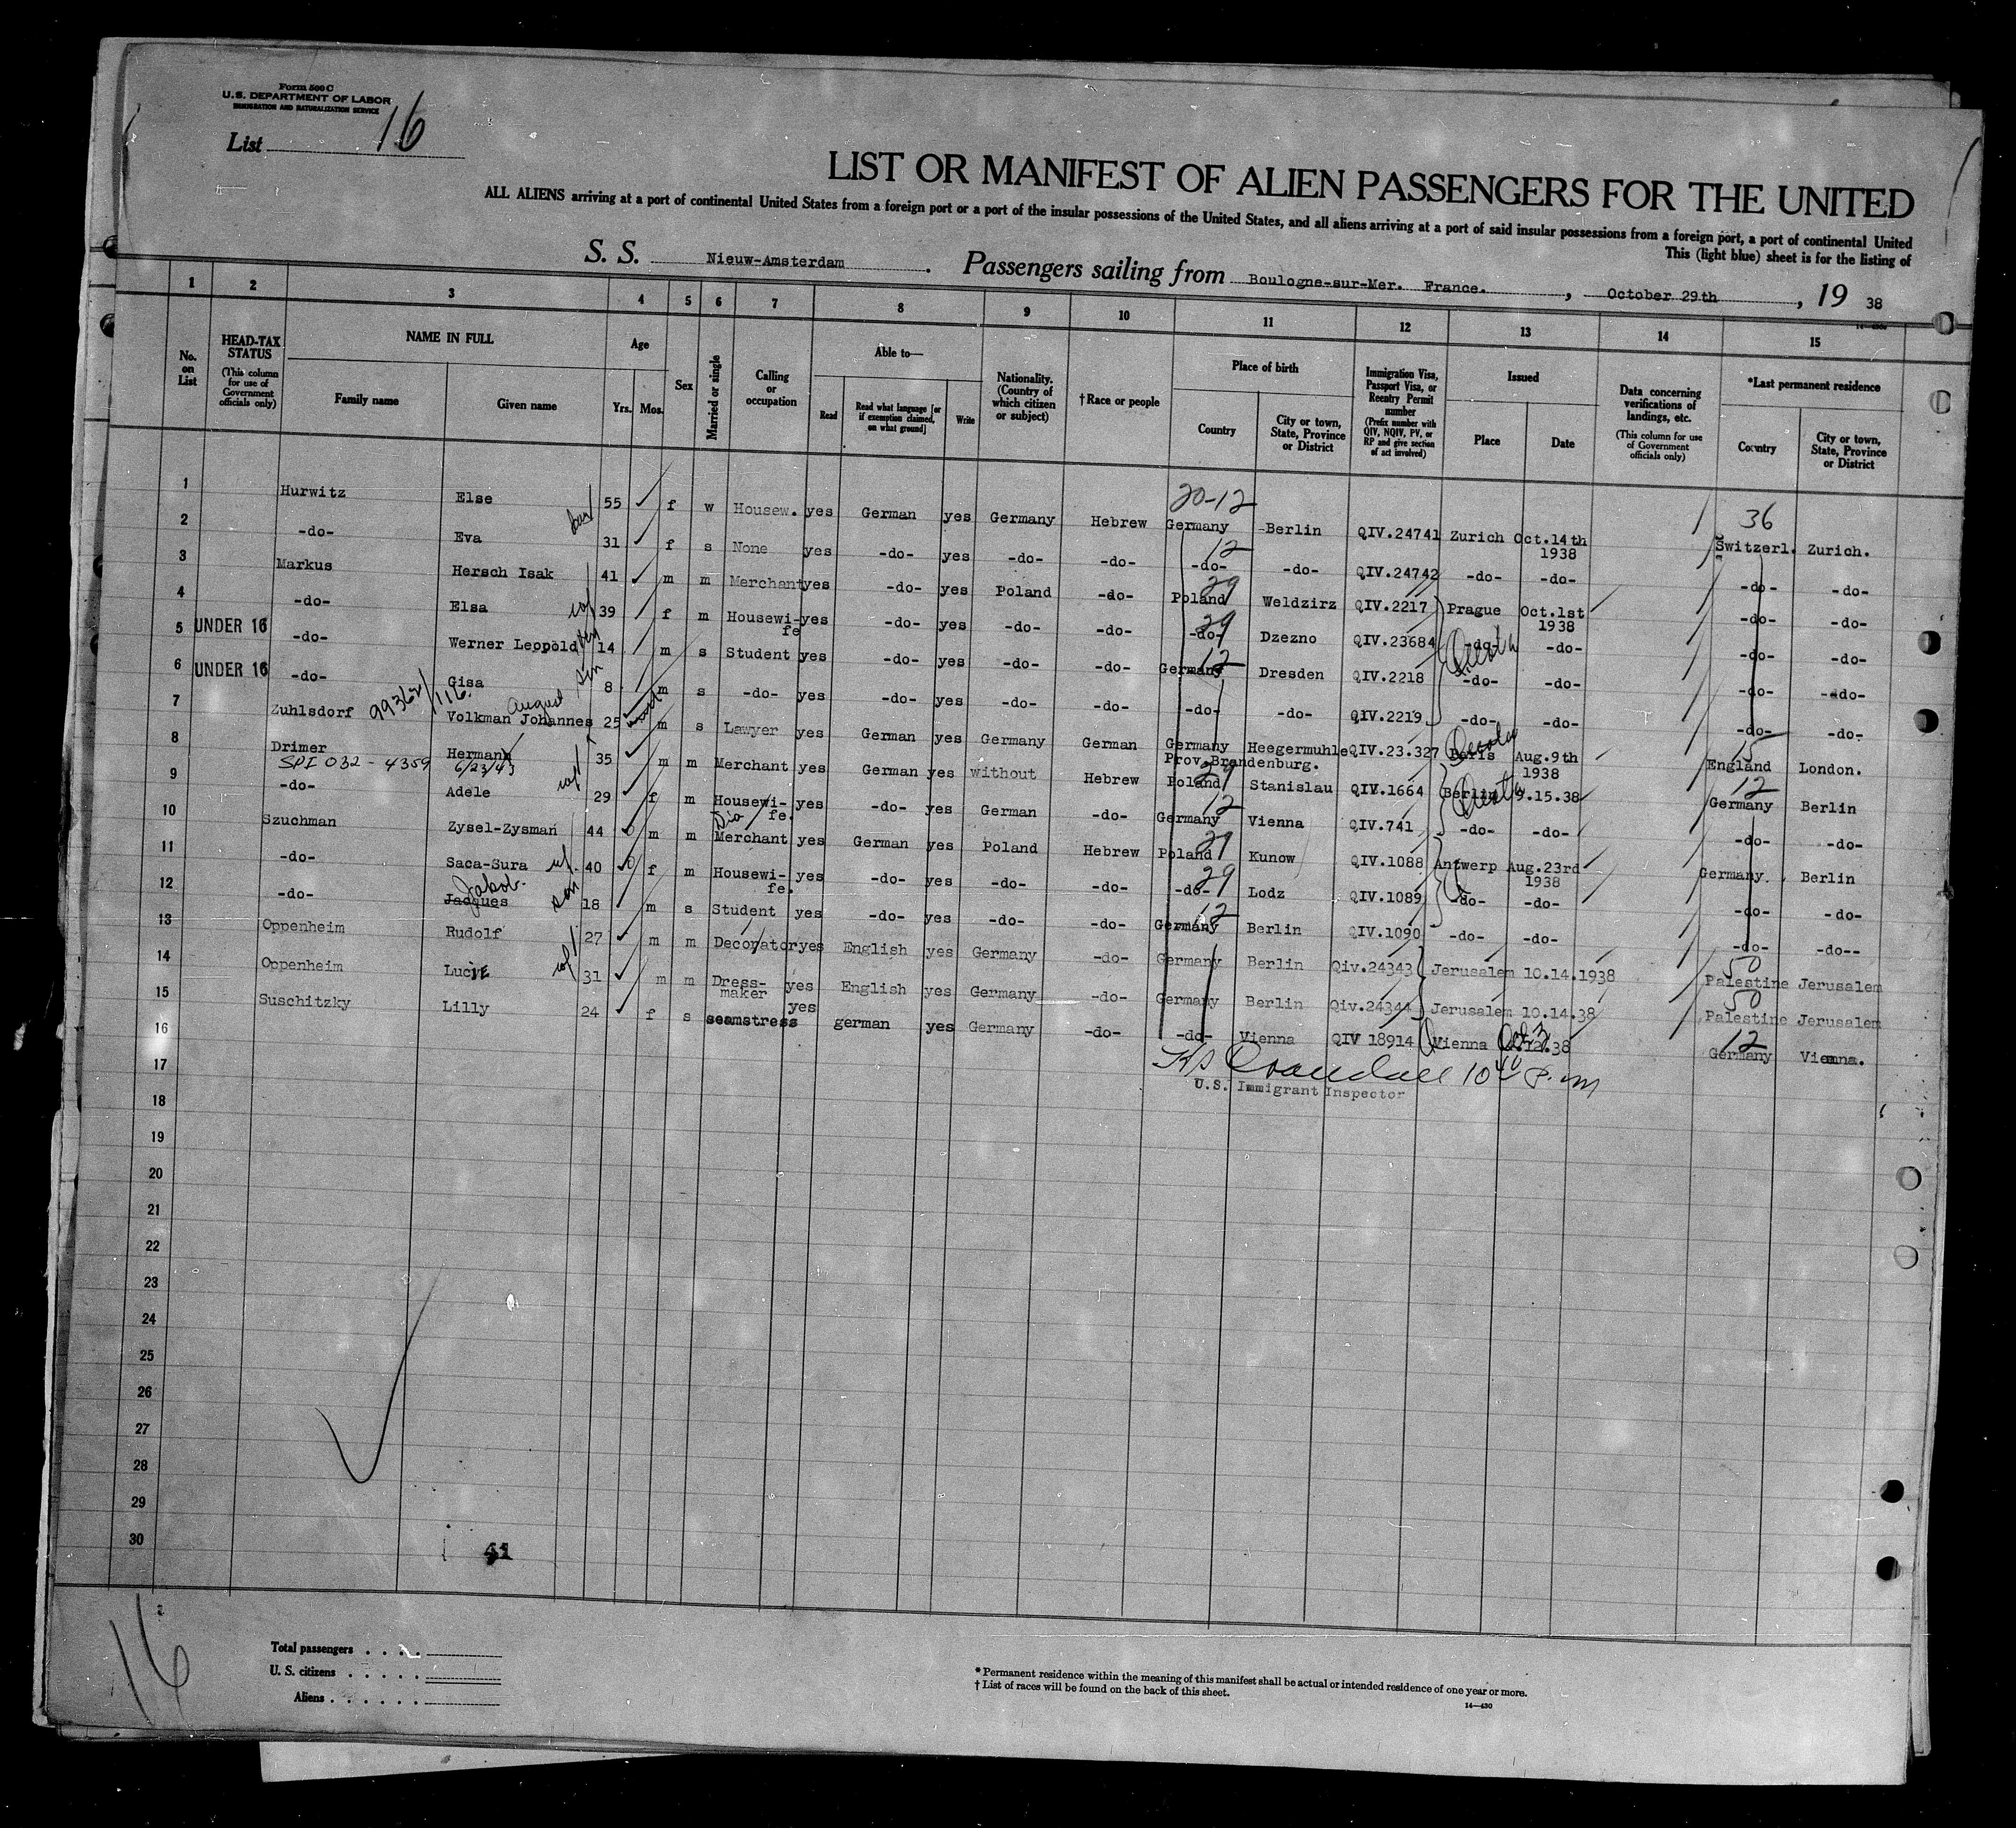 Form 500 C
U.S. DEPARTMENT OF LABOR
IMMIGRATION AND NATURALIZATION SERVICE
List 16
LIST OR MANIFEST OF ALIEN PASSENGERS FOR THE UNITED
ALL ALIENS arriving at a port of continental United States from a foreign port or a port of the insular possessions of the United States, and all aliens arriving at a port of said insular possessions from a foreign port, a port of continental United
This (light blue) sheet is for the listing of
S. S. Nieuw-Amsterdam. Passengers sailing from Boulogne-sur-Mer. France., October 29th, 19 38
1 2 3 4 5 6 7 8 9 10 11 12 13 14 15
No. on List
HEAD-TAX STATUS (This column for use of Government officials only)
NAME IN FULL
Family name Given name
Age
Yrs. Mos.
Sex
Married or single
Calling or occupation
Able to—
Read Read what language [or if exemption claimed, on what ground] Write
Nationality. (Country of which citizen or subject)
†Race or people
Place of birth
Country City or town, State, Province or District
Immigration Visa, Passport Visa, or Reentry Permit number (Prefix number with QIV, NQIV, PV, or RP and give section of act involved)
Issued
Place Date
Data concerning verifications of landings, etc. (This column for use of Government officials only)
*Last permanent residence
Country City or town, State, Province or District
20-12 36
1 Hurwitz Else 55 f w Housew. yes German yes Germany Hebrew Germany Berlin QIV.24741 Zurich Oct.14th 1938 Switzerl. Zurich.
2 -do- Eva 31 f s None yes -do- yes -do- -do- 12 -do- -do- QIV.24742 -do- -do- -do- -do-
3 Markus Hersch Isak 41 m m Merchant yes -do- yes Poland -do- 29 Poland Weldzirz QIV.2217 Prague Oct.1st 1938 -do- -do-
4 -do- Elsa wf 39 f m Housewi-fe yes -do- yes -do- -do- 29 -do- Dzezno QIV.23684 -do- -do- -do- -do-
5 UNDER 16 -do- Werner Leopold 14 m s Student yes -do- yes -do- -do- 12 Germany Dresden QIV.2218 -do- -do- -do- -do-
6 UNDER 16 -do- Gisa 8 m s -do- yes -do- yes -do- -do- -do- -do- QIV.2219 -do- -do- -do- -do-
7 Zuhlsdorf 99362/116. Volkman Johannes August 25 m s Lawyer yes German yes Germany German Germany Heegermuhle Prov.Brandenburg. QIV.23.327 Paris Aug.9th 1938 15 England London.
8 Drimer Hermann 35 m m Merchant yes German yes without Hebrew 29 Poland Stanislau QIV.1664 Berlin 9.15.38 12 Germany Berlin
SPI 032-4359 6/23/43
9 -do- Adele wf 29 f m Housewi-fe. yes -do- yes German -do- 12 Germany Vienna QIV.741 -do- -do- -do- -do-
10 Szuchman Zysel-Zysman 44 m m Merchant yes German yes Poland Hebrew 29 Poland Kunow QIV.1088 Antwerp Aug.23rd 1938 Germany. Berlin
11 -do- Saca-Sura wf. 40 f m Housewi-fe. yes -do- yes -do- -do- 29 -do- Lodz QIV.1089 -do- -do- -do- -do-
12 -do- Jacques Jakob son 18 m s Student yes -do- yes -do- -do- 12 Germany Berlin QIV.1090 -do- -do- -do- -do--
13 Oppenheim Rudolf 27 m m Decorator yes English yes Germany -do- Germany Berlin Qiv.24343 Jerusalem 10.14.1938 50 Palestine Jerusalem
14 Oppenheim Lucie wf 31 m m Dress-maker yes English yes Germany -do- Germany Berlin Qiv.24344 Jerusalem 10.14.38 50 Palestine Jerusalem
15 Suschitzky Lilly 24 f s seamstress yes german yes Germany -do- -do- Vienna QIV 18914 Vienna 12 Germany Vienna.
16
Crandall 10 40 P.m
U.S. Immigrant Inspector
17
18
19
20
21
22
23
24
25
26
27
28
29
30
16
Total passengers
U. S. citizens
Aliens
* Permanent residence within the meaning of this manifest shall be actual or intended residence of one year or more.
† List of races will be found on the back of this sheet.
14—430